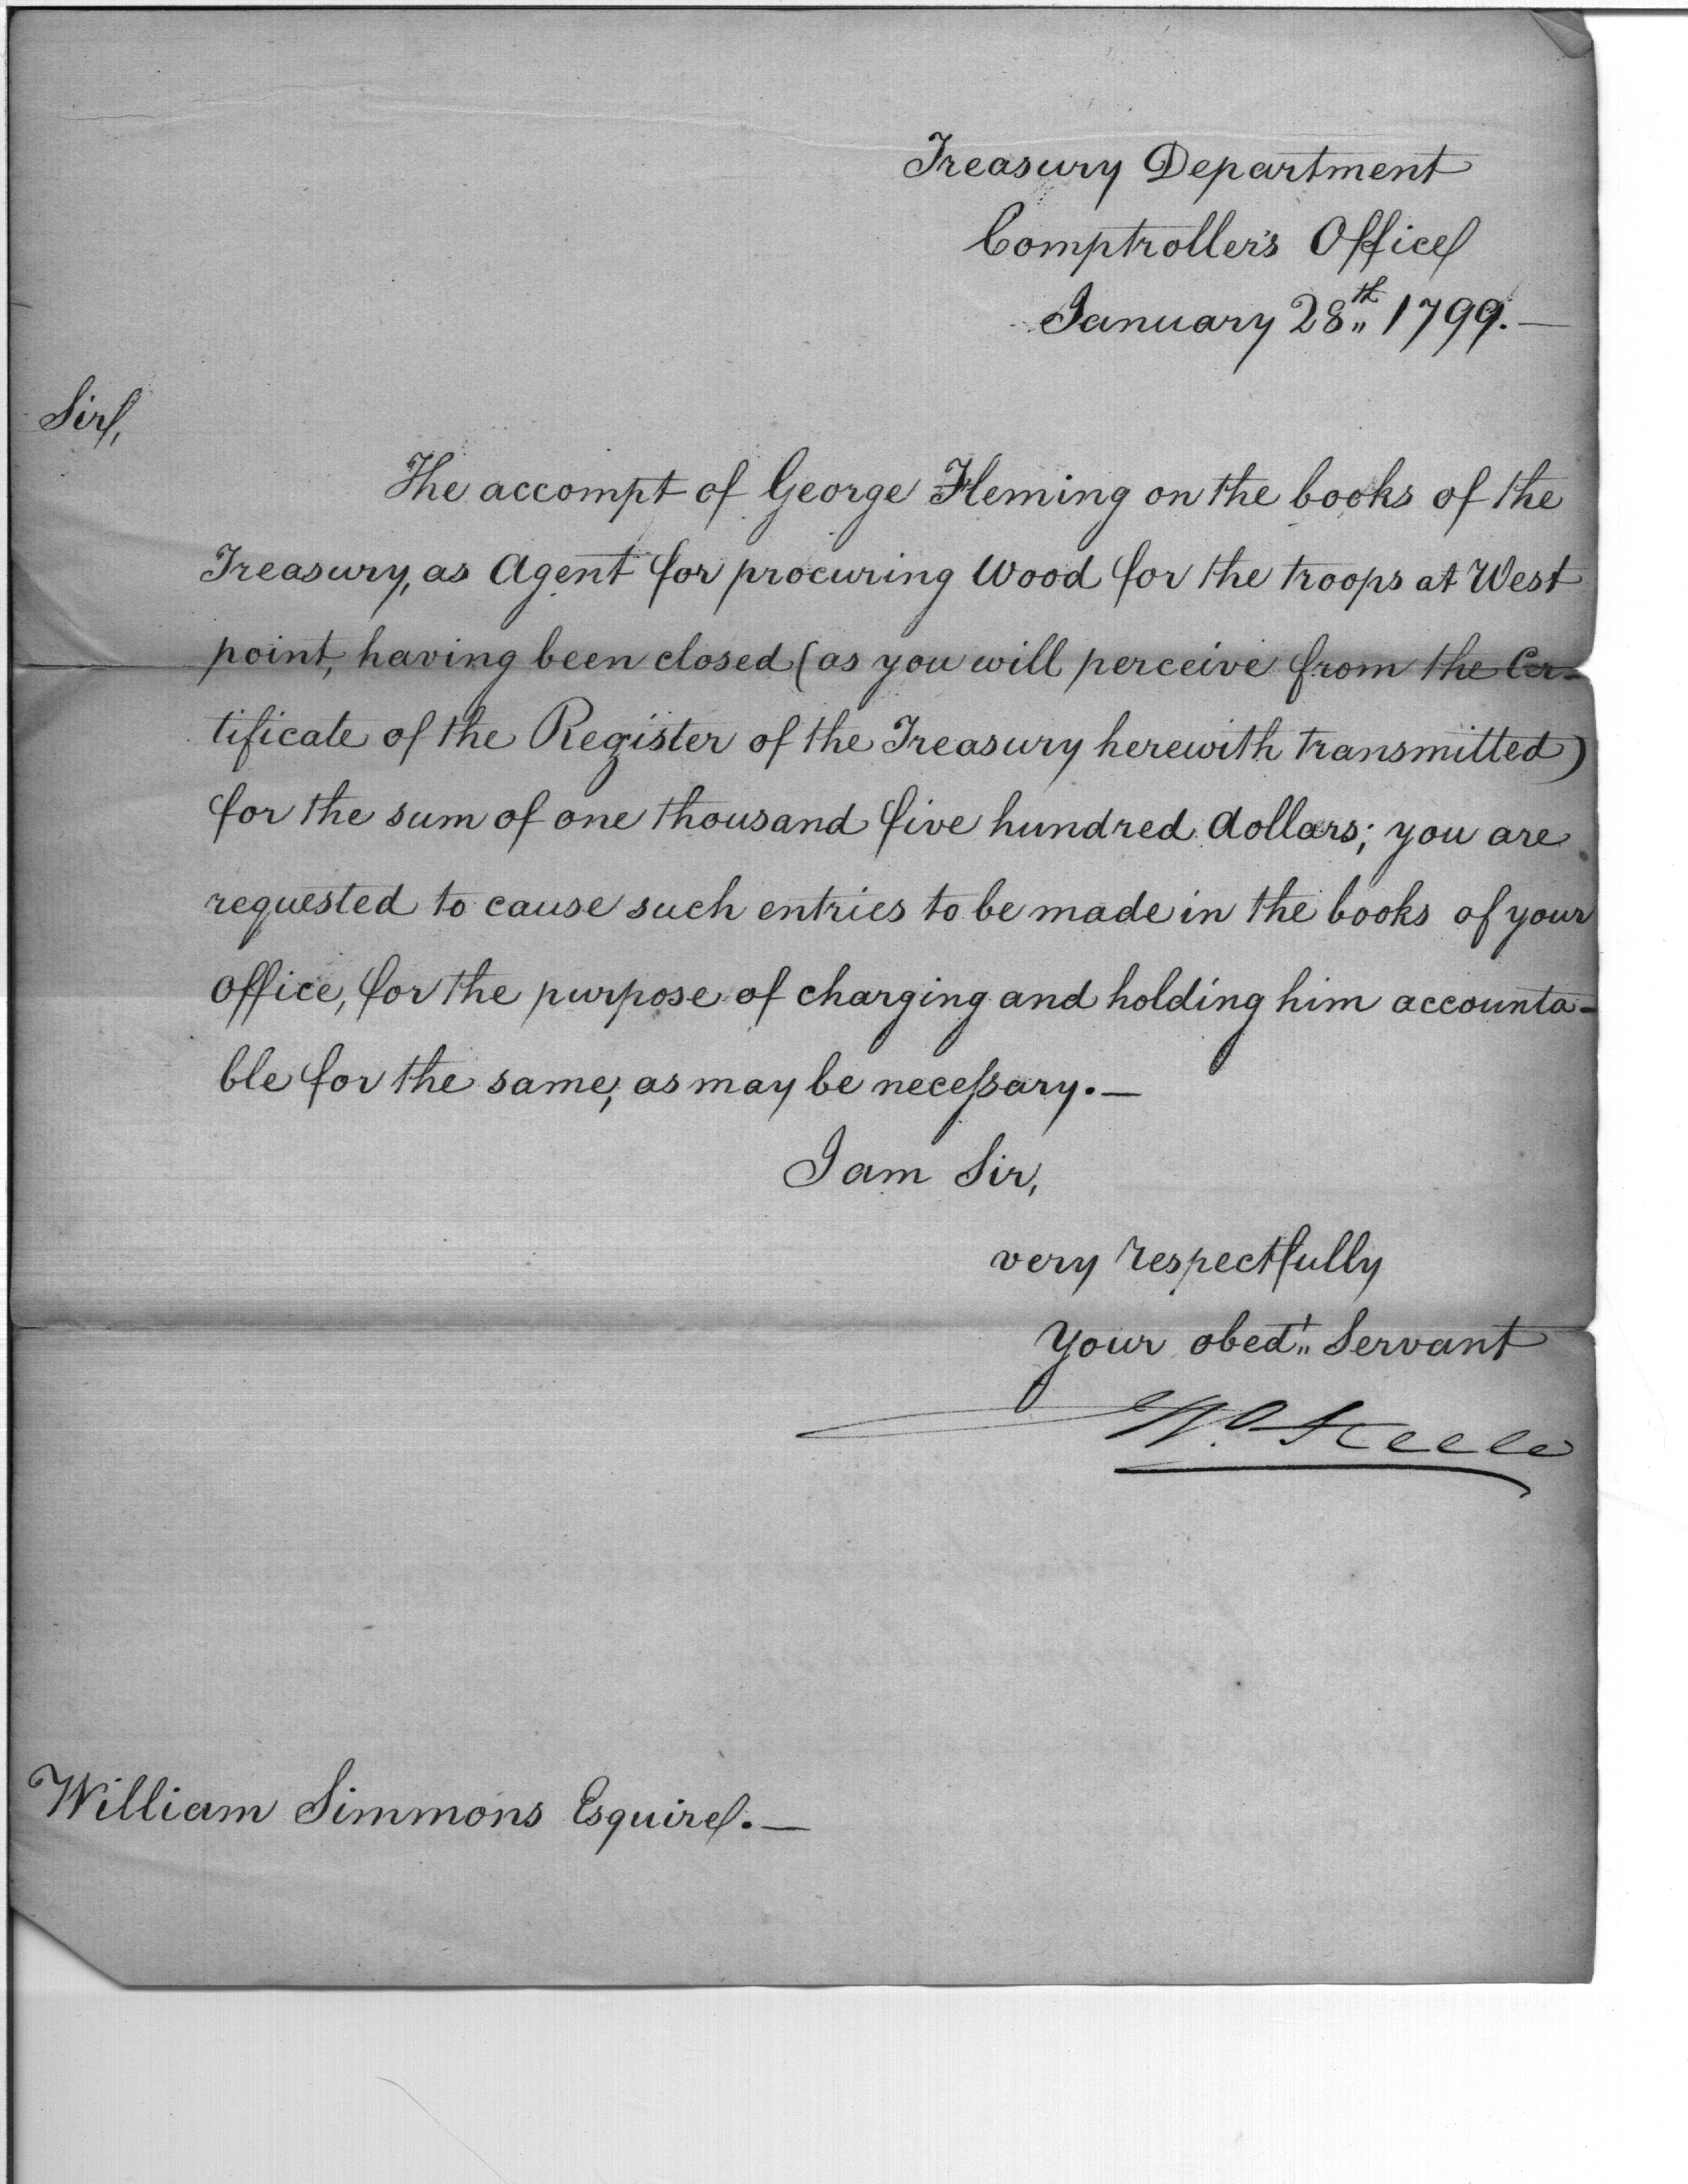 Treasury Department
Comptroller's Office
January 28th 1799.—
Sir,
The accompt of George Fleming on the books of the
Treasury, as Agent for procuring Wood for the troops at West
point, having been closed (as you will perceive from the Cer-
tificate of the Register of the Treasury herewith transmitted)
for the sum of one thousand five hundred dollars; you are
requested to cause such entries to be made in the books of your
office, for the purpose of charging and holding him accounta-
ble for the same, as may be necessary.—
I am Sir,
very respectfully
Your obedt. Servant
Steele
William Simmons Esquire.—